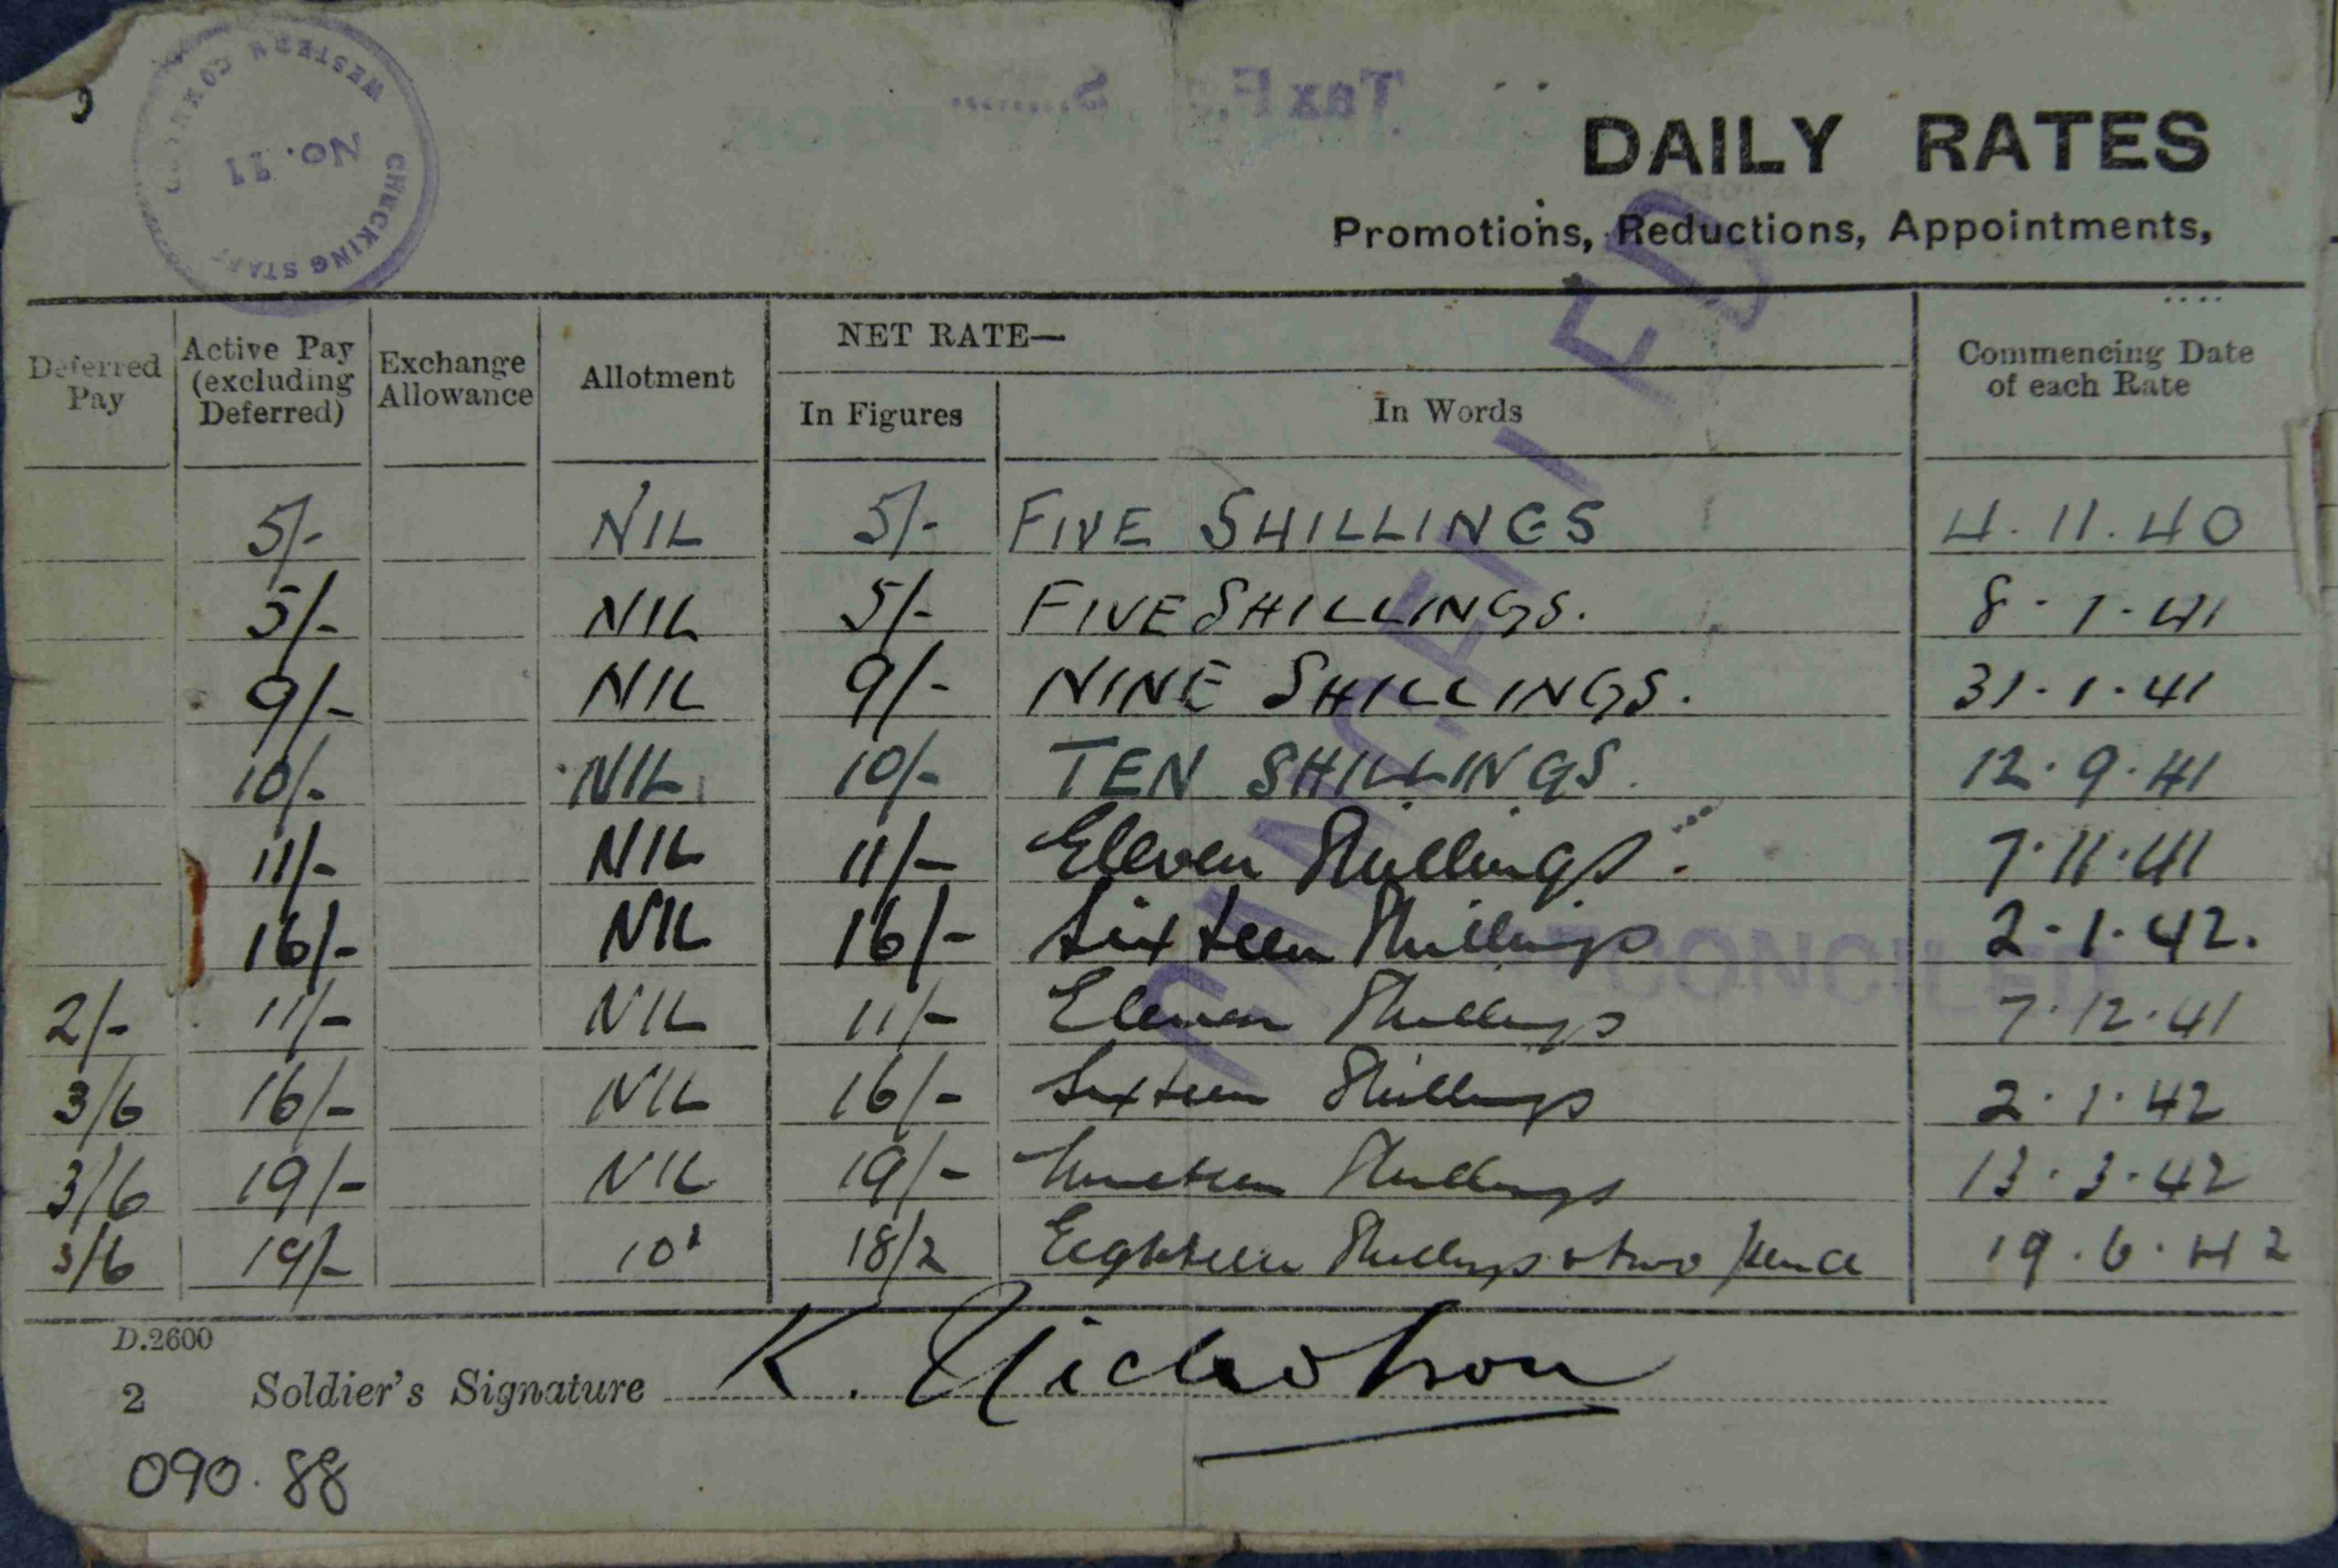 WESTERN COMMAND
No. 11
CHECKING STAFF
Tax F. S.......
DAILY RATES
Promotions, Reductions, Appointments,
Deferred Pay | Active Pay (excluding Deferred) | Exchange Allowance | Allotment | NET RATE— In Figures | In Words | Commencing Date of each Rate
5/- NIL 5/- FIVE SHILLINGS 4.11.40
5/- NIL 5/- FIVE SHILLINGS. 8.1.41
9/- NIL 9/- NINE SHILLINGS. 31.1.41
10/- NIL 10/- TEN SHILLINGS. 12.9.41
11/- NIL 11/- Eleven Shillings. 7.11.41
16/- NIL 16/- Sixteen Shillings 2.1.42.
2/- 11/- NIL 11/- Eleven Shillings 7.12.41
3/6 16/- NIL 16/- Sixteen Shillings 2.1.42
3/6 19/- NIL 19/- Nineteen Shillings 13.3.42
3/6 19/- 10 18/2 Eighteen Shillings & two pence 19.6.42
RECONCILED
D.2600
2 Soldier's Signature K. Nicholson
090.88